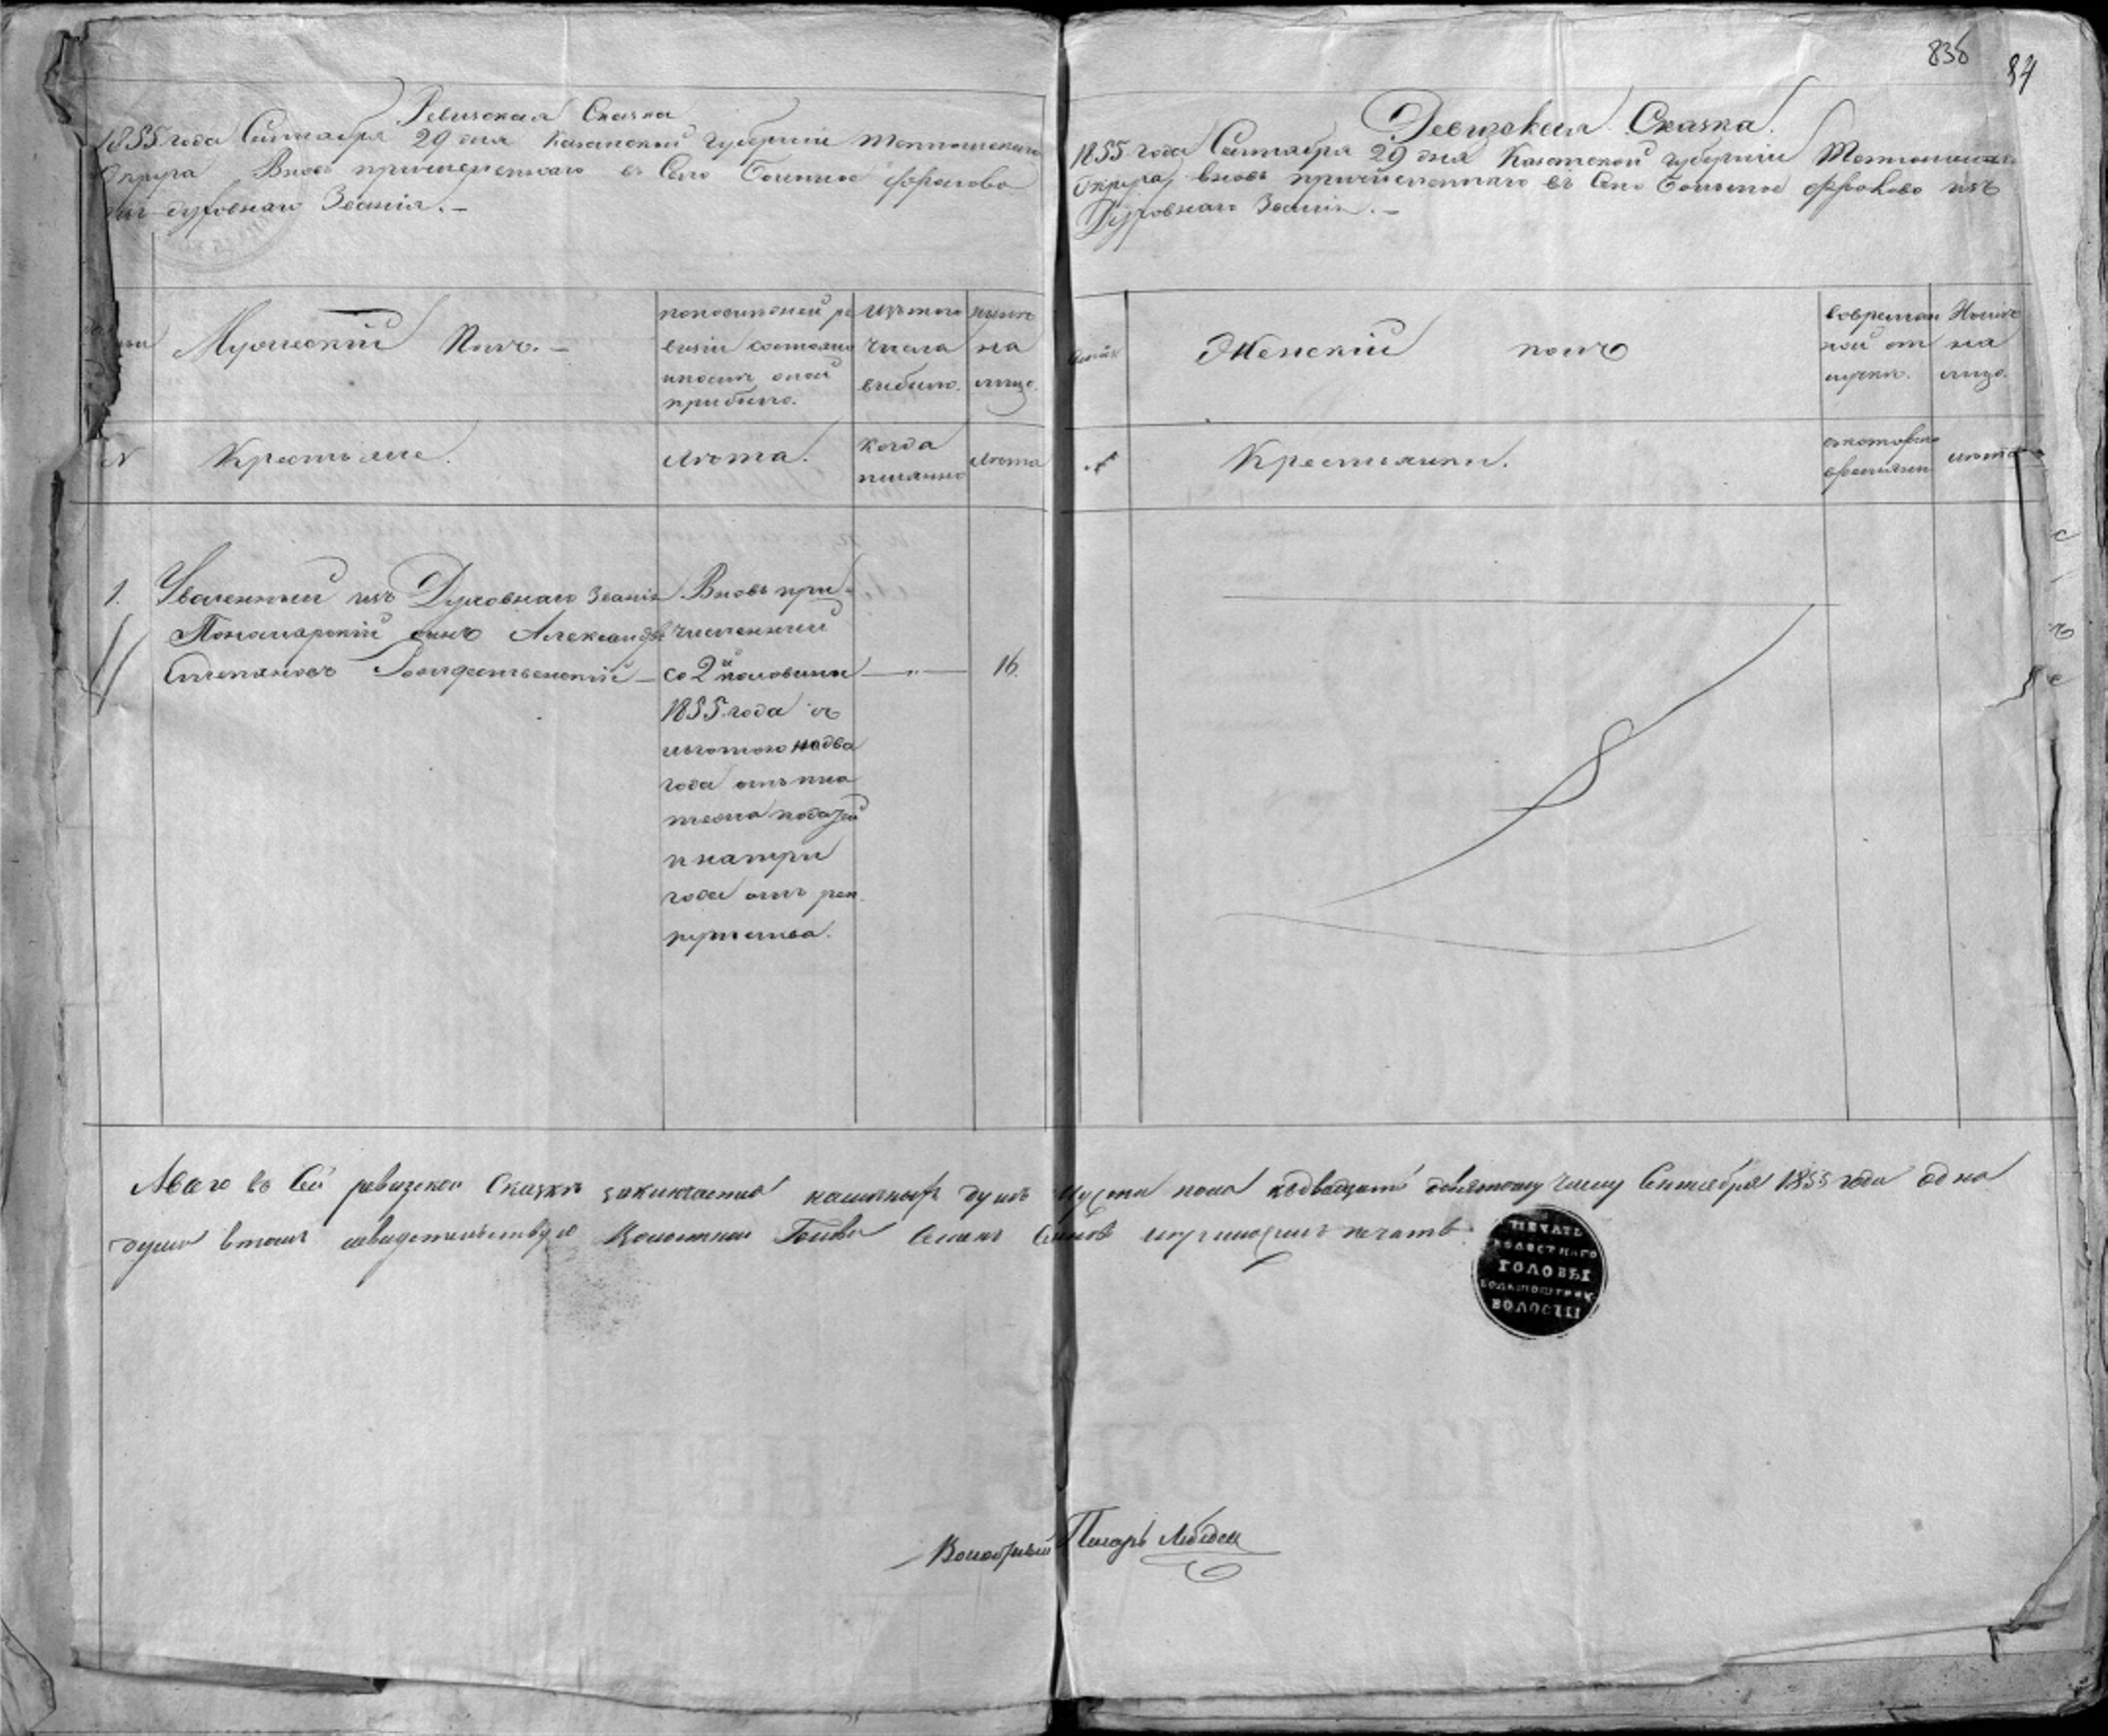 Ревизская Сказка
1855 года Сентября 29 дня Казанской Губернии Тетюшскаго
Округа Вновь причисленнаго въ Село Большое Фролово
изъ духовнаго Званія. –
Мужескій Полъ. –
по последней ре
визіи состояло
и после оной
прибыло.
Изъ того
числа
выбыло.
ныне
на
лицо.
№
Крестьяне.
Лѣта.
когда
именно
Лѣта
1.
Уволенный изъ Духовнаго званія
Пономарскій сынъ Александръ
Степановъ Рождественскій –
Вновь при-
численный
со 2й половины
1855 года съ
льготою на два
года отъ пла
тежа податей
и на три
года отъ рек
рутства.
16.
836
84
Ревизская Сказка.
1855 года Сентября 29 дня Казанской губерніи Тетюшскаго
Округа, вновь причисленнаго въ Село Большое Фролово изъ
Духовнаго Званія. –
Женскій полъ
Во времен
ной от
лучке.
Ныне
на
лицо.
Крестьянки.
съ котораго
времяни
лѣта
А Всего въ Сей ревизской Сказкѣ заключается наличныхъ душъ мужска пола къ двадцать девятому числу Сентября 1855 года одна
душа въ томъ свидетельствую Волостной Голова печать
ПЕЧАТЬ
ВОЛОСТНАГО
ГОЛОВЫ
ВОЛОСТИ
Волостный Писарь Лебедев